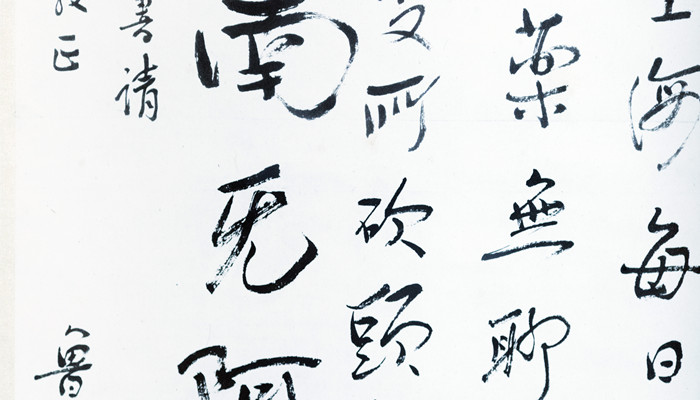 海每日
薬無聊
所砍頭
南无阿
書請
正 魯